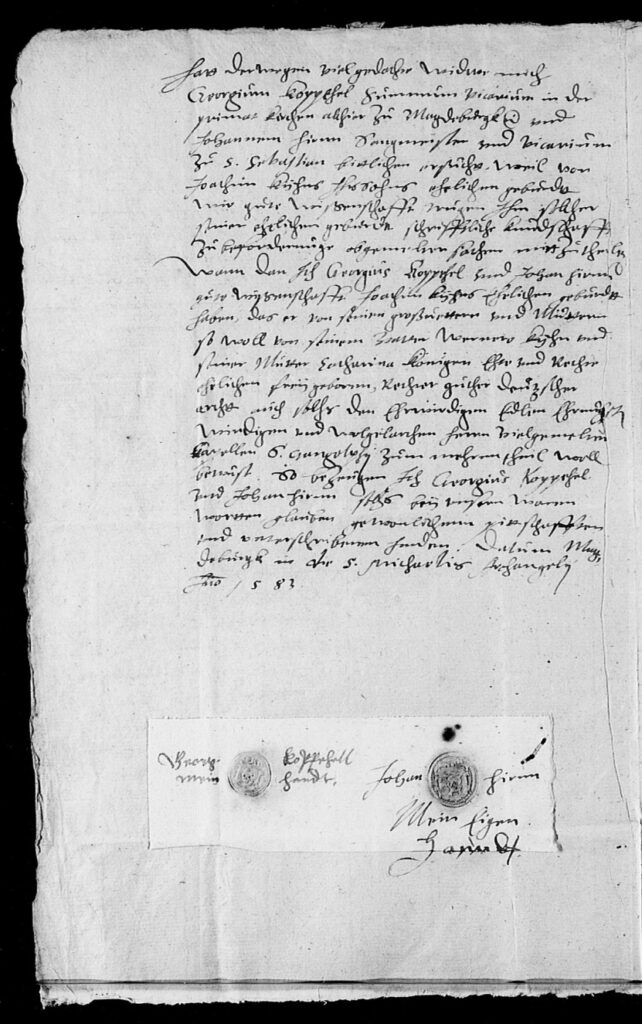 hatt derwegen vielgedachte Widwe mich
Georgium Koppehel Summum vicarium in der
primat kirchen alhier zu Magdeburgk und
Johannem hirnn Sangmeister und vicarium
zu S. Sebastian bitlichen ersucht, weil von
Joachim Kuhns ehelichen geburdt
wir gute wissenschafft trugen, Ihm solcher
seiner ehelichen geburdt schrifftliche kundschafft
zu befordrunge obgemelter sachen mitzutheilen
Wann dan Ich Georgius Koppehel und Johan hirnn
gute wissenschafft Joachim Kuhns Ehelichen geburdt
haben, das er von seinen großvettern und Müttern
so woll von seinem Vatter Wernero Kuhn und
seiner Mutter Catharina Königen Ehe und Rechte
ehelichen frey geboren, Rechter guther deutzscher
arth, auch solchs den Ehrwirdigen Edlen Ehrnvhesten
wirdigen und wolgelarthen herrn vielgemelten
Capellen S. Gangolphj zum mehrentheil woll
bewust. So bezeugen Ich Georgius Koppehel
und Johan hirnn solchs bey unsern waren
wortten glauben gewonlichenn pitschafften
und unterschriebenen henden. Datum Mag-
deburgk in die S. Michaelis Archangelj
Anno 1583
Georg Koppehell
mein handt.
Johan hirnn
Mein Eigen
Handt.